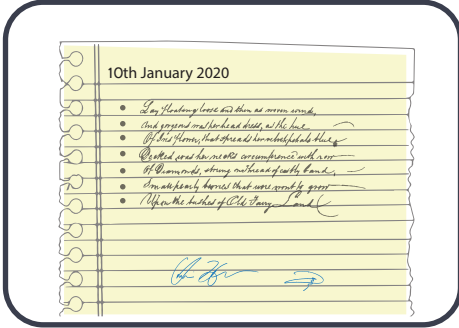 10th January 2020
Lay floating loose and as moon
And gorgeous was her head dress, as the hue
Of flower, that spreads her velvet petals blue
Decked was her neck's circumference with row
Of Diamonds, strung on thread of costly band,
Small pearly berries that were wont to grow
Upon the bushes of Old Fairy Land